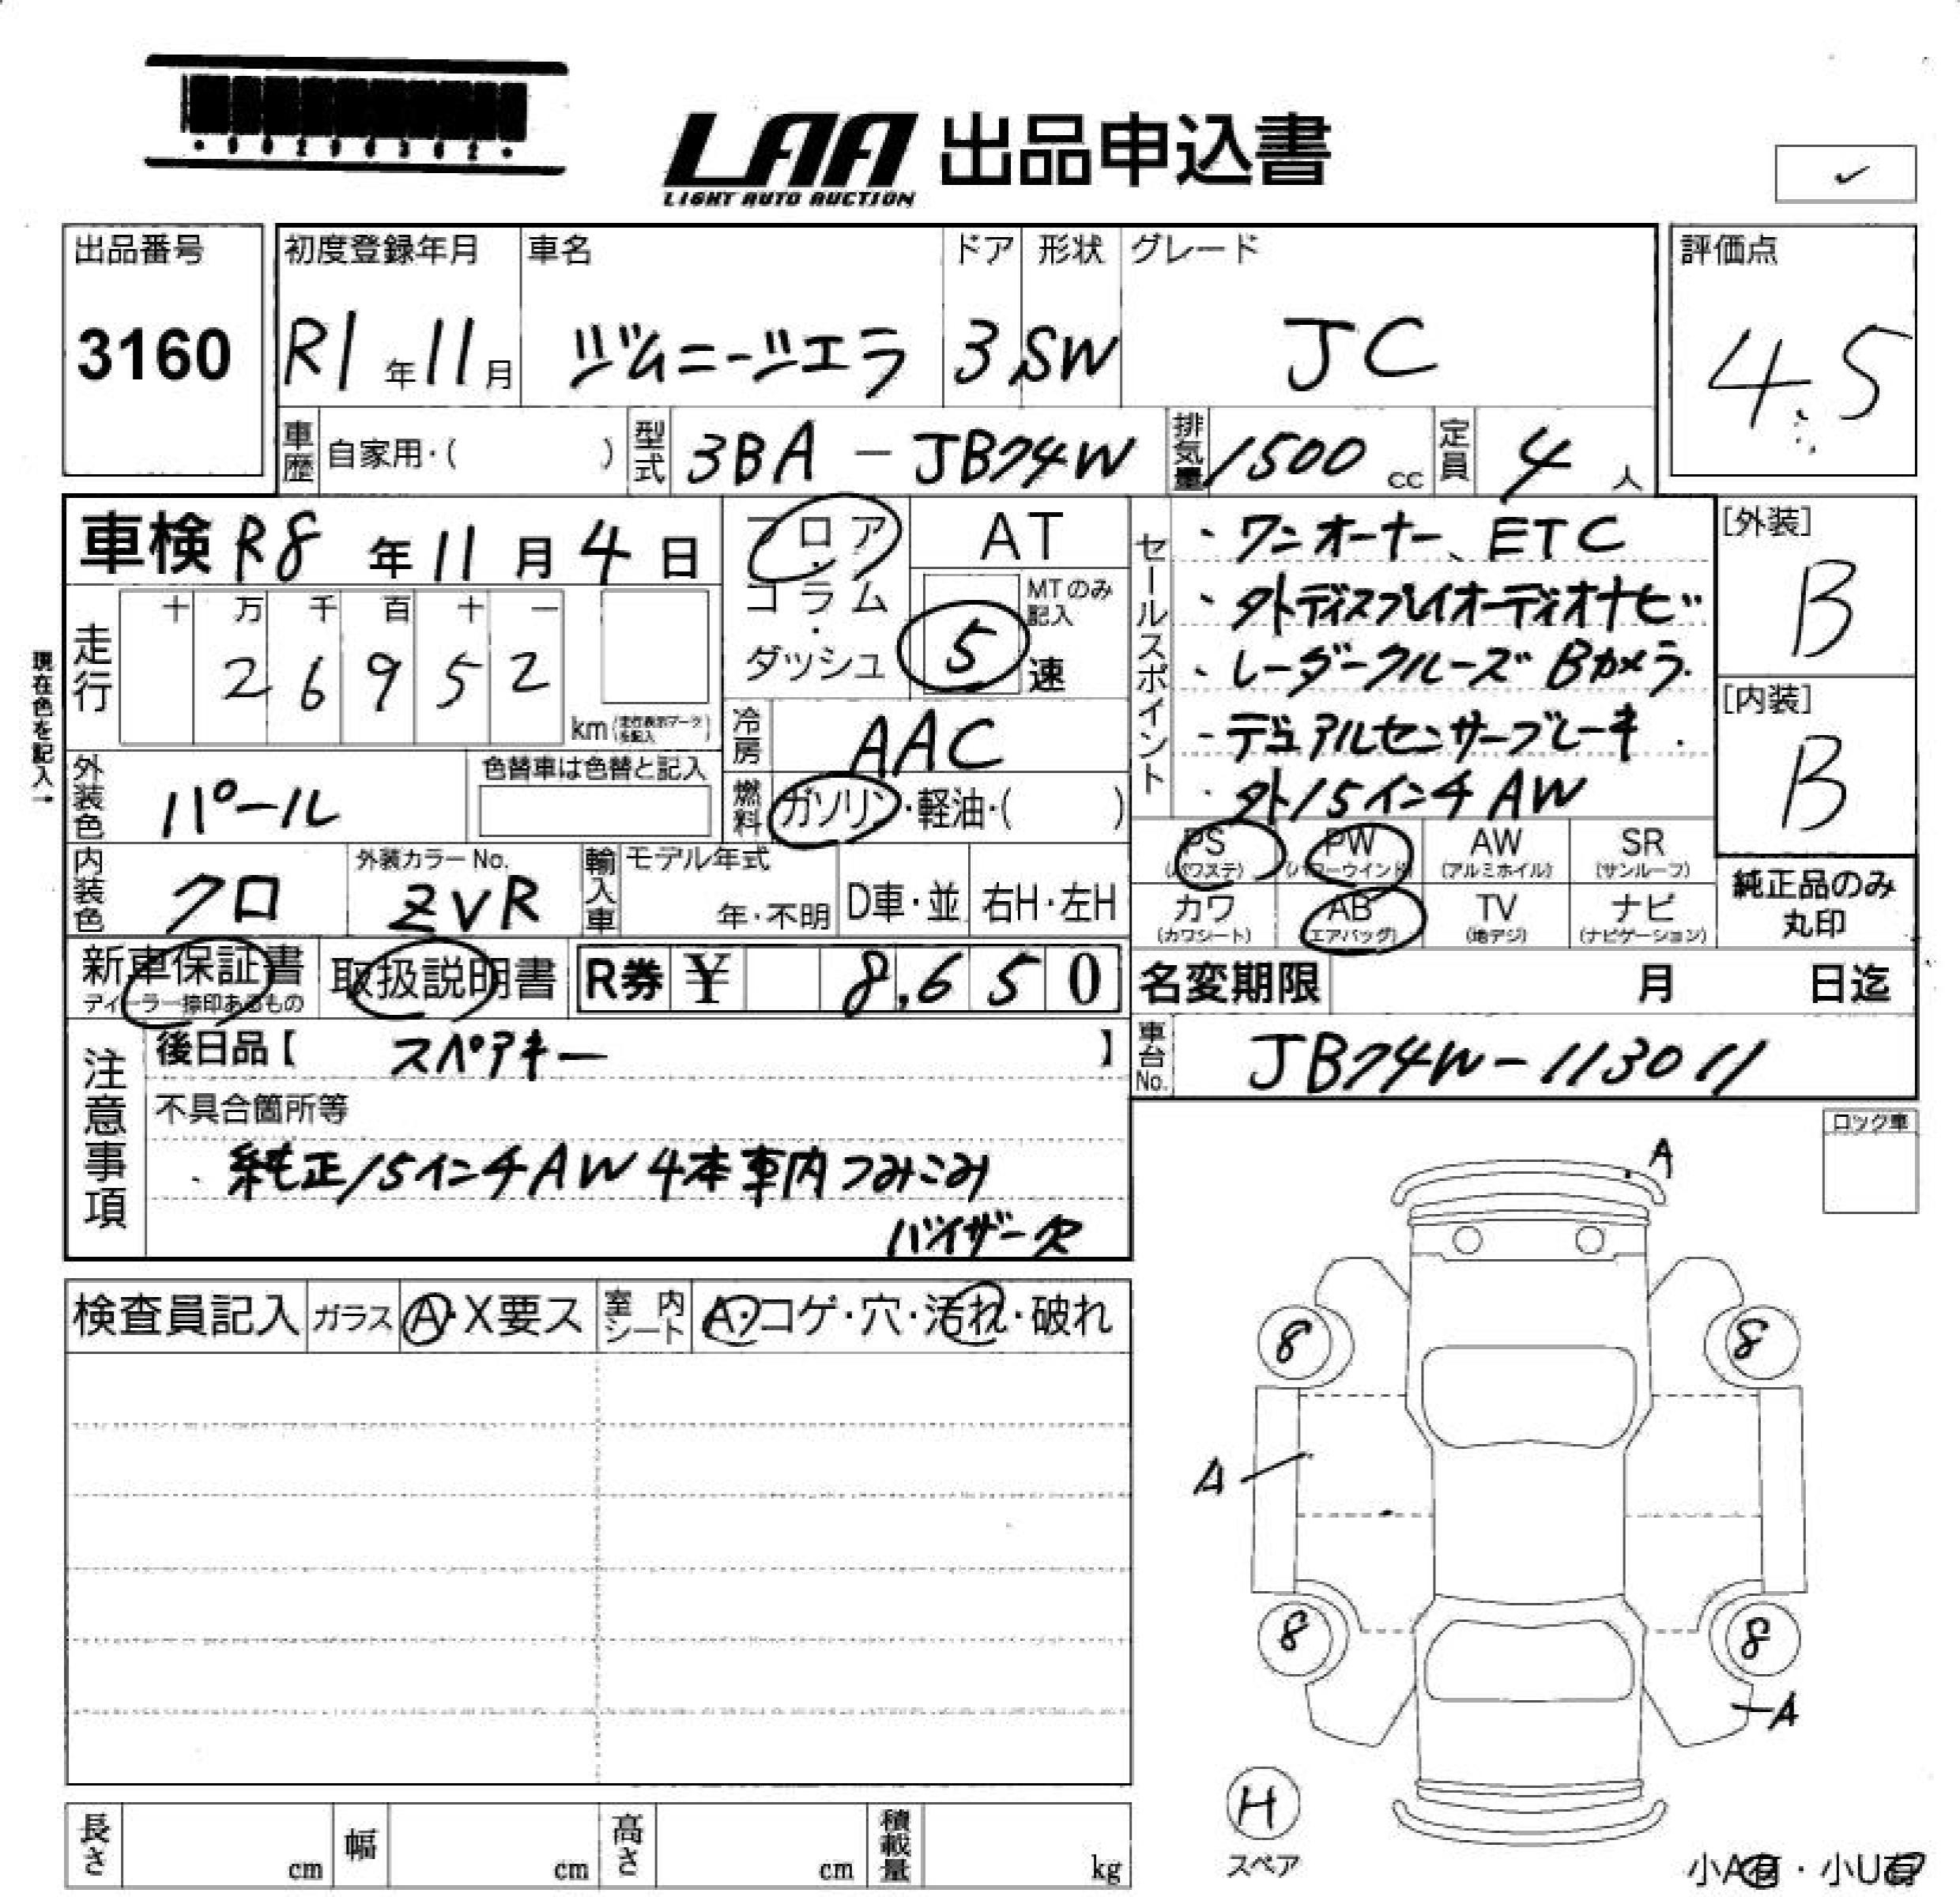 LAA 出品申込書
LIGHT AUTO AUCTION
出品番号
3160
初度登録年月
R1年11月
車名
ジムニージエラ
ドア
3
形状
SW
グレード
JC
評価点
4.5
車歴 自家用・( )
型式 3BA-JB74W
排気量 1500 cc
定員 4 人
車検 R8年11月4日
フロア・コラム・ダッシュ
AT
MTのみ記入
5速
走行
十 万 千 百 十 一
2 6 9 5 2
km
現在色を記入→
冷房 AAC
外装色 パール
色替車は色替と記入
燃料 ガソリン・軽油・( )
内装色 クロ
外装カラーNo.
ZVR
輸入車 モデル年式
年・不明
D車・並
右H・左H
セールスポイント
・ワンオーナー、ETC
・外ディスプレイオーディオナビ
・レーダークルーズ Bカメラ
・デュアルセンサーブレーキ
・外15インチAW
[外装]
B
[内装]
B
PS (パワステ)
PW (パワーウインド)
AW (アルミホイル)
SR (サンルーフ)
カワ (カワシート)
AB (エアバッグ)
TV (地デジ)
ナビ (ナビゲーション)
純正品のみ
丸印
新車保証書
ディーラー捺印あるもの
取扱説明書
R券 ¥ 8,650
名変期限 月 日迄
車台No. JB74W-113011
注意事項
後日品【 スペアキー 】
不具合箇所等
・純正15インチAW4本車内つみこみ
バイザー欠
ロック車
検査員記入
ガラス A・X要ス
室内シート A・コゲ・穴・汚れ・破れ
A
8 8
A
8 8
A
H
スペア
長さ cm
幅 cm
高さ cm
積載量 kg
小A有・小U有